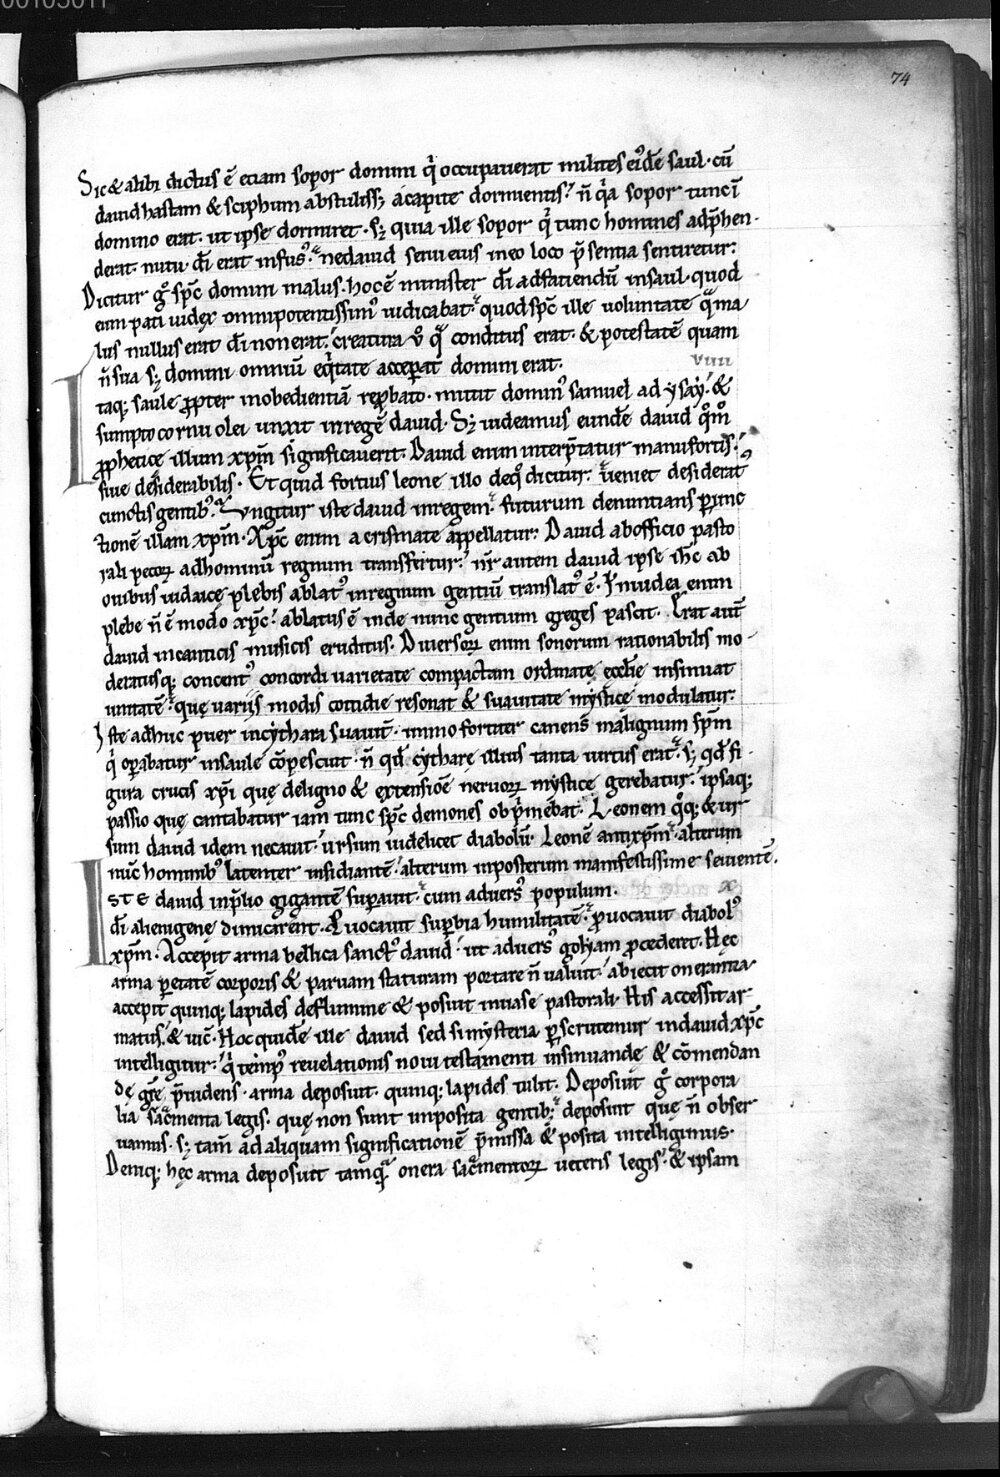 74
Sic & alibi dictus ē etiam sopor domini q̇ occupauerat milites eiꝰdē saul· cū
dauid hastam & sciphum abstuliss; a capite dormientis· n̄ q̇a sopor tunc ī
domino erat· ut ipse dormiret· sꝫ quia ille sopor q̇ tunc homines adp̄hen-
derat· nutu dī erat infusꝰ· ne dauid seruī eius in eo loco p̄sentia sentiretur:
Dicitur gͦ sp̄c domini malus· hoc ē minister dī ad faciendū in saul· quod
eum pati iudex omnipotentissimꝰ iudicabat· quod sp̄c ille uoluntate qͣ ma
lus nullus erat dī non erat· creatura ů qͣ conditus erat· & potestatē quam
n̄ sua sꝫ domini omniū eq̇tate acceꝑat domini erat. VIIII
Itaqꝫ saule ꝓpter inobedientiā reꝓbato· mittit dominꝰ samuel ad ysaẏ· &
sumpto cornu olei unxit in regē dauid· Sꝫ uideamus eundē dauid qͦmͦ
ꝓphetice illum xp̄m significauerit· Dauid enim interp̄tatur manu fortis·
siue desiderabilis· Et quid fortius leone illo de qͦ dicitur: ueniet desideratꝰ
cunctis gentibꝰ· Ungitur iste dauid in regem· futurum denuntians ꝑ unc
tionē illam xp̄m· Xp̄c enim a crismate appellatur: Dauid ab officio pasto
rali pecorꝝ ad hominū regnum transfertur· nr̄ autem dauid ipse ih̄c ab
ouibus iudaicę plebis ablatꝰ in regnum gentiū translatꝰ ē· In iudea enim
plebe n̄ ē modo xp̄c· ablatus ē inde nunc gentium greges pascit· Erat aut̄
dauid in canticis musicis eruditus· Diuersorꝝ enim sonorum rationabilis mo-
deratusqꝫ concentꝰ concordi uarietate compactam ordinatę ecclīe insinuat
unitatē· quę uariis modis cottidie resonat & suauitate mystice modulatur:
Iste adhuc puer in cythara suauit̄· immo fortiter canens malignum sp̄m
q̇ oꝑabatur in saule cōpescuit· n̄ qd̄ cytharę illius tanta uirtus erat· sꝫ qd̄ fi-
gura crucis xp̄i quę de ligno & extensionē neruorꝝ mystice gerebatur· ipsaqꝫ
passio quę cantabatur iam tunc sp̄c demones obp̄mebat· Leonem qͦqꝫ & ur
sum dauid idem necauit· ursum uidelicet diabolū· Leonē antixp̄m· alterum
nūc hominibꝰ latenter insidiantē· alterum in posterum manifestissime seuientē.
ISTE dauid in p̄lio gigantē suꝑauit· cum aduersꝰ populum. X
dī alienigenę dimicarent· Euocauit suꝑbia humilitatē· ꝓuocauit diabolꝰ
xp̄m· Accepit arma bellica sanctꝰ dauid· ut aduersꝰ goliam ꝓcederet· Hęc
arma ꝑ etatē corporis & paruam staturam portare n̄ ualuit· abiecit onerantia
accepit quinqꝫ lapides de flumine & posuit in uase pastorali· His accessit ar-
matus· & uic̄· Hoc quidē ille dauid sed si mysteria ꝑscrutemur in dauid xp̄c
intelligitur: q̇ tempꝰ reuelationis noui testamenti insinuandę & cōmendan
dę gr̄ę p̄uidens· arma deposuit· quinqꝫ lapides tulit· Deposuit gͦ corpora
lia sac̄menta legis· quę non sunt imposita gentibꝫ· deposuit quę n̄ obser
uamus· sꝫ tam̄ ad aliquam significationē p̄missa & posita intelligimus·
Deniqꝫ hęc arma deposuit tamqͣ onera sac̄mentorꝝ ueteris legis· & ipsam